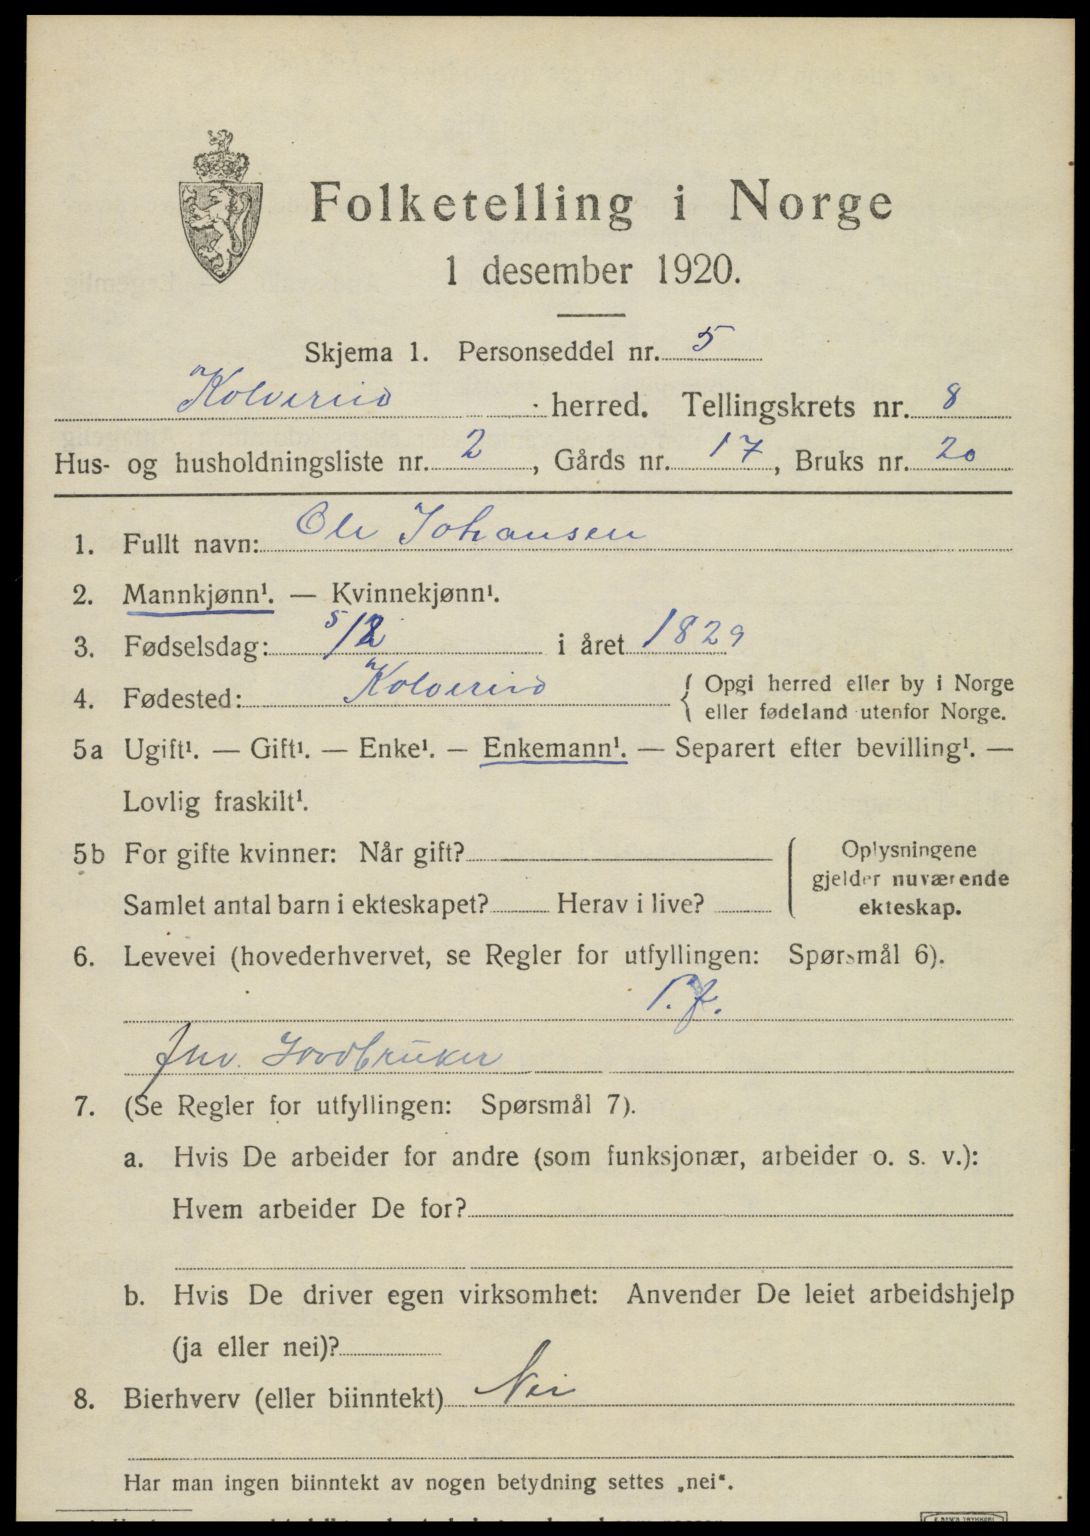 Folketelling i Norge
1 desember 1920.
Skjema 1. Personseddel nr. 5
Kolvereid herred. Tellingskrets nr. 8
Hus- og husholdningsliste nr. 2, Gårds nr. 17, Bruks nr. 20
1. Fullt navn: Ole Johansen
2. Mannkjønn¹. — Kvinnekjønn¹.
3. Fødselsdag: 5/2 i året 1829
4. Fødested: Kolvereid { Opgi herred eller by i Norge
eller fødeland utenfor Norge.
5a Ugift¹. — Gift¹. — Enke¹. — Enkemann¹. — Separert efter bevilling¹. —
Lovlig fraskilt¹.
5b For gifte kvinner: Når gift? { Oplysningene
gjelder nuværende
Samlet antal barn i ekteskapet? Herav i live? ekteskap.
6. Levevei (hovederhvervet, se Regler for utfyllingen: Spørsmål 6).
f.
Jordbruker
7. (Se Regler for utfyllingen: Spørsmål 7).
a. Hvis De arbeider for andre (som funksjonær, arbeider o. s. v.):
Hvem arbeider De for?
b. Hvis De driver egen virksomhet: Anvender De leiet arbeidshjelp
(ja eller nei)?
8. Bierhverv (eller biinntekt) Nei
Har man ingen biinntekt av nogen betydning settes „nei".